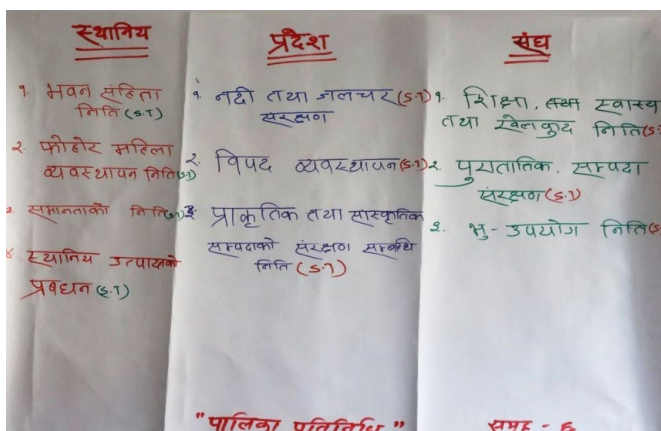 स्थानिय
१. भवन संहिता
निति (S.T)
२. फोहोर महिला
व्यवस्थापन निति (S.T)
३. समानताको निति (S.T)
४ स्थानिय उत्पादनको
प्रबधन (S.T)
प्रदेश
१ नदी तथा जलचर (S.T)
संरक्षण
२. विपद व्यवस्थापन (S.T)
३ प्राकृतिक तथा सास्कृतिक
सम्पदाको संरक्षण सम्बन्धि
निति (S.T)
संघ
१. शिक्षा, स्वास्थ
तथा खेलकुद निति (S.
२. पुरातात्विक सम्पदा
संरक्षण (S.T)
३. भु-उपयोग निति (S.
"पालिका प्रतिनिधि"
समुह - ६